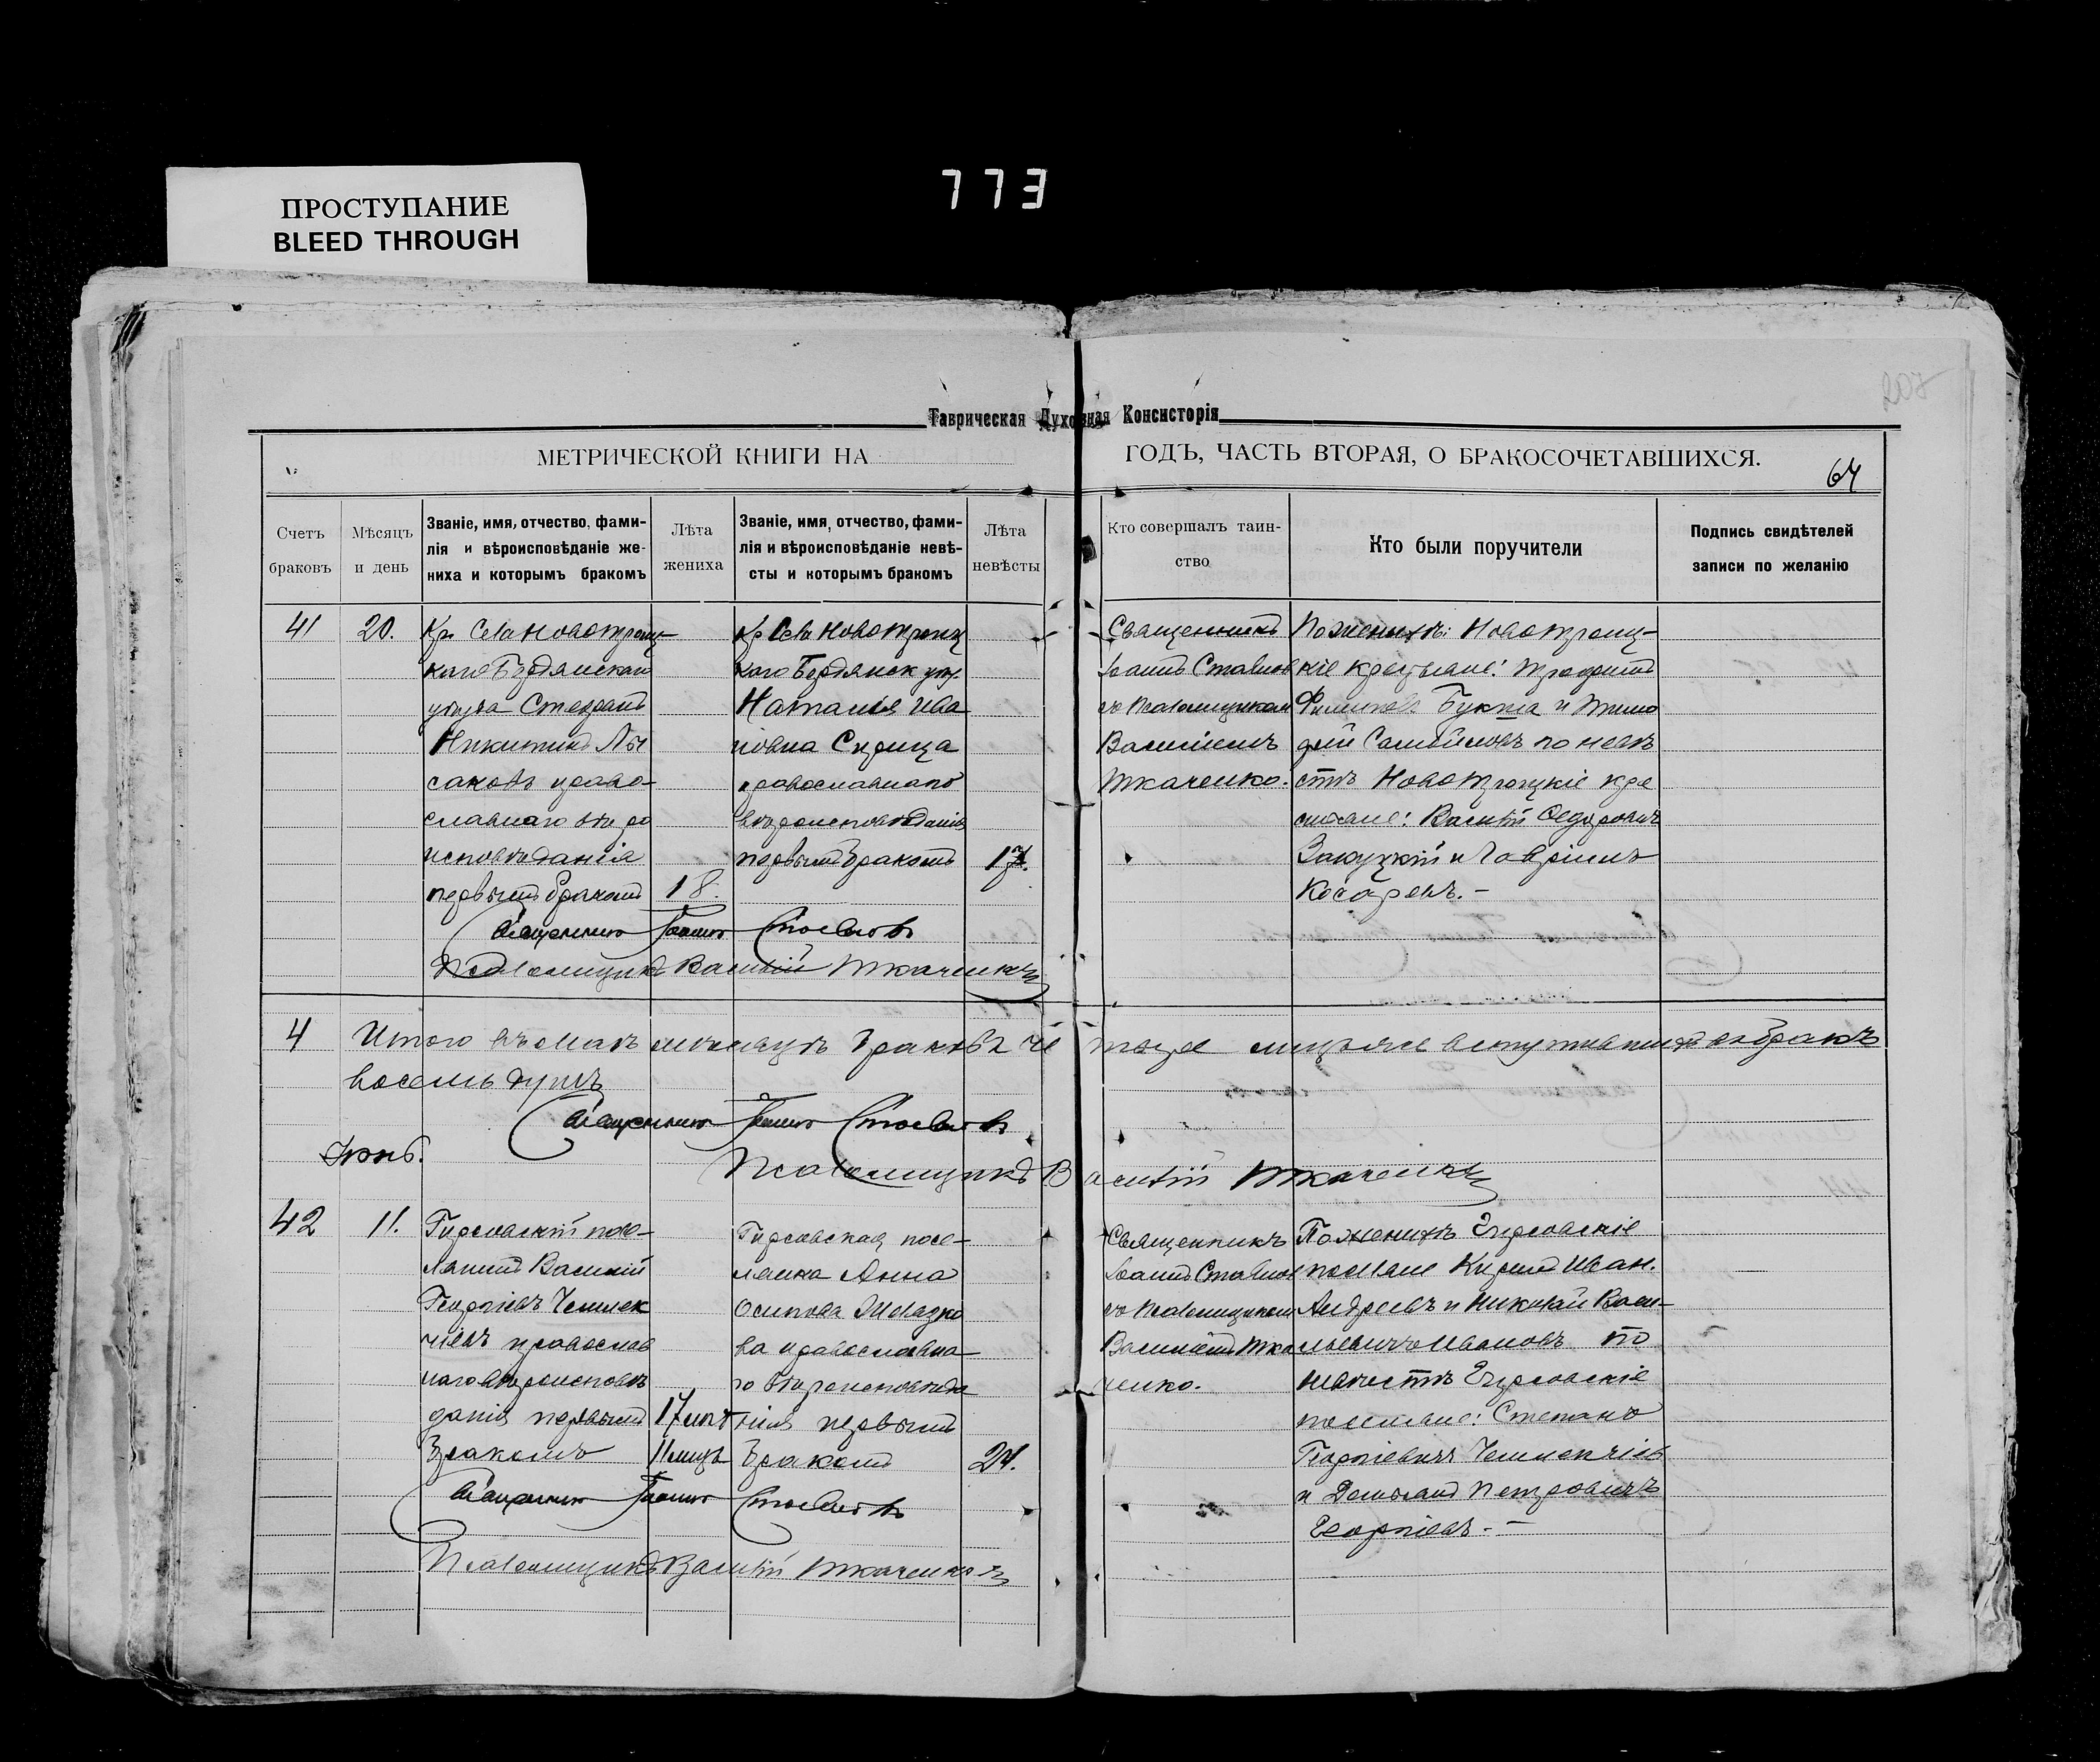 ПРОСТУПАНИЕ
BLEED THROUGH
773
Таврическая Духовная Консисторія
МЕТРИЧЕСКОЙ КНИГИ НА ГОДЪ, ЧАСТЬ ВТОРАЯ, О БРАКОСОЧЕТАВШИХСЯ.
64
Счетъ
браковъ
Мѣсяцъ
и день
Званіе, имя, отчество, фами-
лія и вѣроисповѣданіе же-
ниха и которымъ бракомъ
Лѣта
жениха
Званіе, имя, отчество, фами-
лія и вѣроисповѣданіе невѣ-
сты и которымъ бракомъ
Лѣта
невѣсты
Кто совершалъ таин-
ство
Кто были поручители
Подпись свидѣтелей
записи по желанію
41
20.
Кр. Села Новотроиц-
каго Бердянскаго
уѣзда Стефанъ
Никитинъ Лы
саковъ право-
славнаго вѣро
исповѣданія
первымъ бракомъ
18.
Кр Села Новотроиц
каго Бердянск уѣз.
Наталія Ива
новна
православнаго
вѣроисповѣданія
первымъ бракомъ
17.
Священникъ
Іоаннъ Стоиловъ
съ Псаломщикомъ
Василіемъ
Ткаченко.
По женихѣ: Новотроиц-
кіе крестьяне: Трофимъ
Филиповъ Букта и Тимо
фей Самойловъ по невѣ
стѣ Новотроицкіе кре
стьяне: Василій Федоровичъ
и Гавріилъ
Косаревъ.-
Священникъ Іоаннъ Стоиловъ
Псаломщикъ Василій Ткаченко
4
Итого въ маѣ мѣсяцѣ браковъ че тыре вступившихъ въ бракъ
восемь душъ
Священникъ Іоаннъ Стоиловъ
Іюнь.
Псаломщикъ Василій Ткаченко
42
11.
Гирсовскій посе-
лянинъ Василій
Георгіевъ Чешмек
чіевъ православ
наго вѣроисповѣ
данія первымъ
бракомъ
17 лѣт
11 мцъ
Гирсовская посе-
лянка Анна
Осипова
ва православна-
го вѣроисповѣда
нія первымъ
бракомъ
21.
Священникъ
Іоаннъ Стоиловъ
съ Псаломщикомъ
Василіемъ Тка
ченко.
По женихѣ Гирсовскіе
поселяне Кирилъ Иван.
Андреевъ и Николай Васи-
льевичъ Ивановъ по
невѣстѣ Гирсовскіе
поселяне: Степанъ
Георгіевичъ Чешмекчіевъ
и Демьянъ Петровичъ
Георгіевъ.-
Священникъ Іоаннъ Стоиловъ
Псаломщикъ Василій Ткаченко